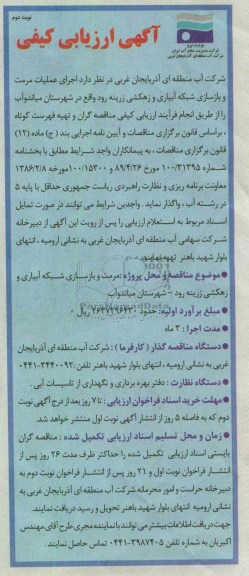 نوبت دوم
وزارت نیرو
شرکت مدیریت منابع آب ایران
شرکت سهامی آب منطقه ای آذربایجان غربی
آگهی ارزیابی کیفی
شرکت آب منطقه ای آذربایجان غربی در نظر دارد اجرای عملیات مرمت
و بازسازی شبکه آبیاری و زهکشی زرینه رود واقع در شهرستان میاندوآب
را از طریق انجام فرآیند ارزیابی کیفی مناقصه گران و تهیه فهرست کوتاه
، براساس قانون برگزاری مناقصات و آیین نامه اجرایی بند (ج) ماده (۱۲)
قانون برگزاری مناقصات ، به پیمانکاران واجد شرایط مطابق با بخشنامه
شماره ۱۰۰/۳۱۳۹۵ مورخ ۸۹/۴/۲۶ و ۱۰۰/۱۵۳۰۰ مورخه ۱۳۸۶/۲/۸
معاونت برنامه ریزی و نظارت راهبردی ریاست جمهوری حداقل با پایه ۵
در رشته آب ، واگذار نماید . واجدین شرایط می توانند در صورت تمایل
اسناد مربوط به استعلام ارزیابی را پس از رویت این آگهی از دبیرخانه
شرکت سهامی آب منطقه ای آذربایجان غربی به نشانی ارومیه ، انتهای
بلوار شهید باهنر تهیه نمایند.
●موضوع مناقصه و محل پروژه :مرمت و بازسازی شبکه آبیاری و
زهکشی زرینه رود – شهرستان میاندوآب
●مبلغ برآورد اولیه: حدود ۷۶۳۷۱۹۶۲۳۰ ریال
●مدت اجرا : ۳ ماه
●دستگاه مناقصه گذار ( کارفرما ) : شرکت آب منطقه ای آذربایجان
غربی به نشانی ارومیه ، انتهای بلوار شهید باهنر تلفن :۳۴۴۰۰۹۲-۰۴۴۱
●دستگاه نظارت : دفتر بهره برداری و نگهداری از تاسیسات آبی .
●مهلت خرید اسناد فراخوان ارزیابی : تا ۷ روز بعد از درج آگهی نوبت
دوم که به فاصله ۵ روز از انتشار آگهی نوبت اول منتشر خواهد شد.
●زمان و محل تسلیم اسناد ارزیابی تکمیل شده : مناقصه گران
بایستی اسناد ارزیابی تکمیل شده را حداکثر ظرف مدت ۲۶ روز پس از
انتشار فراخوان نوبت اول و ۲۱ روز پس از انتشار فراخوان نوبت دوم به
دبیرخانه حراست و امور محرمانه شرکت آب منطقه ای آذربایجان غربی به
نشانی ارومیه انتهای بلوار شهید باهنر تحویل و رسید دریافت نمایند.
جهت دریافت اطلاعات بیشتر می توانند با نماینده مجری طرح آقای مهندس
اکبریان به شماره تلفن ۳۹۸۷۴۰۵-۰۴۴۱ تماس حاصل نمایند.